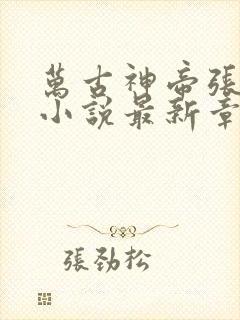 萬古神帝張
小說最新章
張勁松